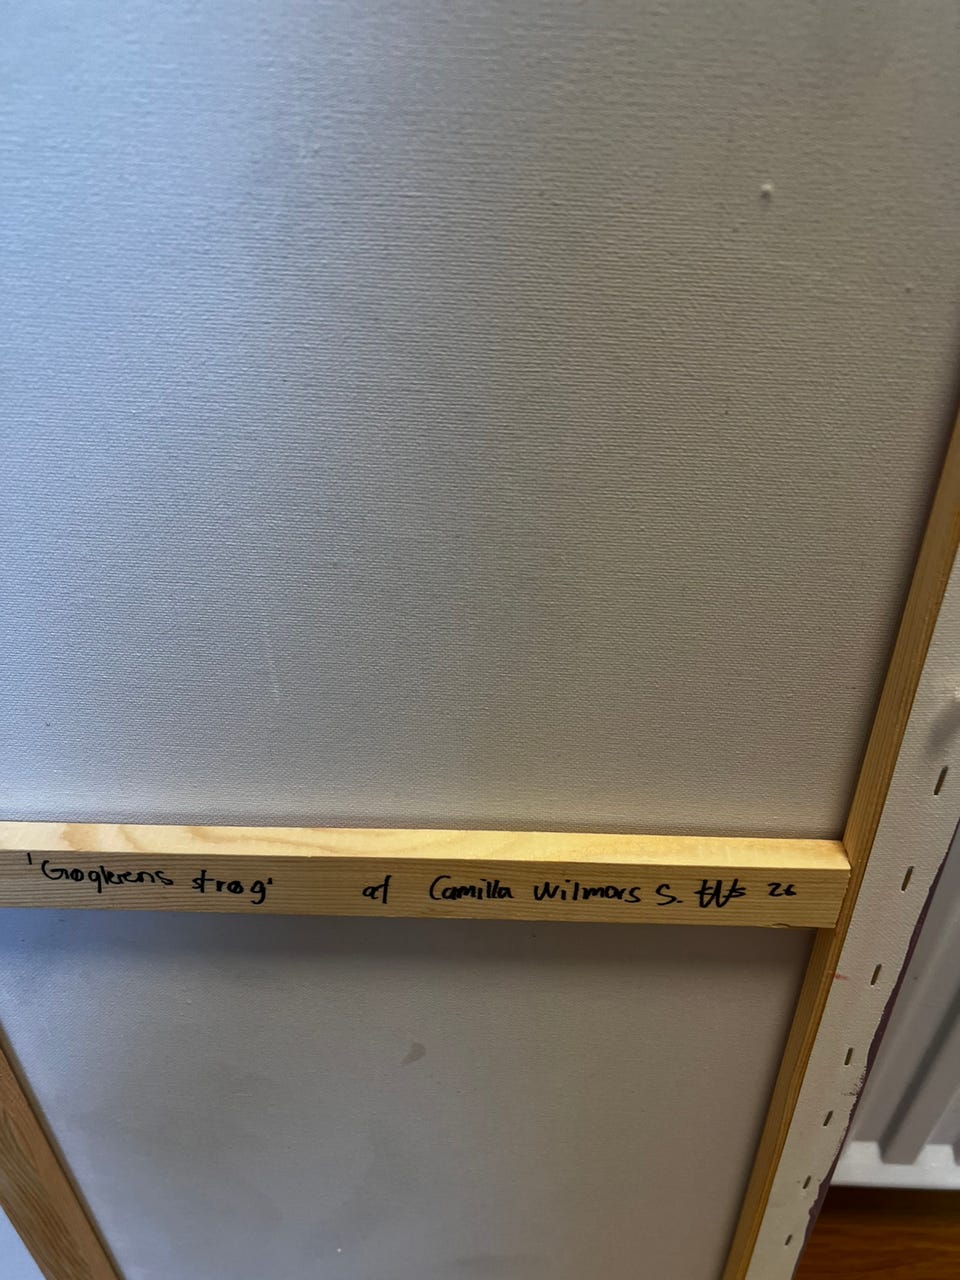 'Gøglerens strøg' af Camilla Wilmars S. 26